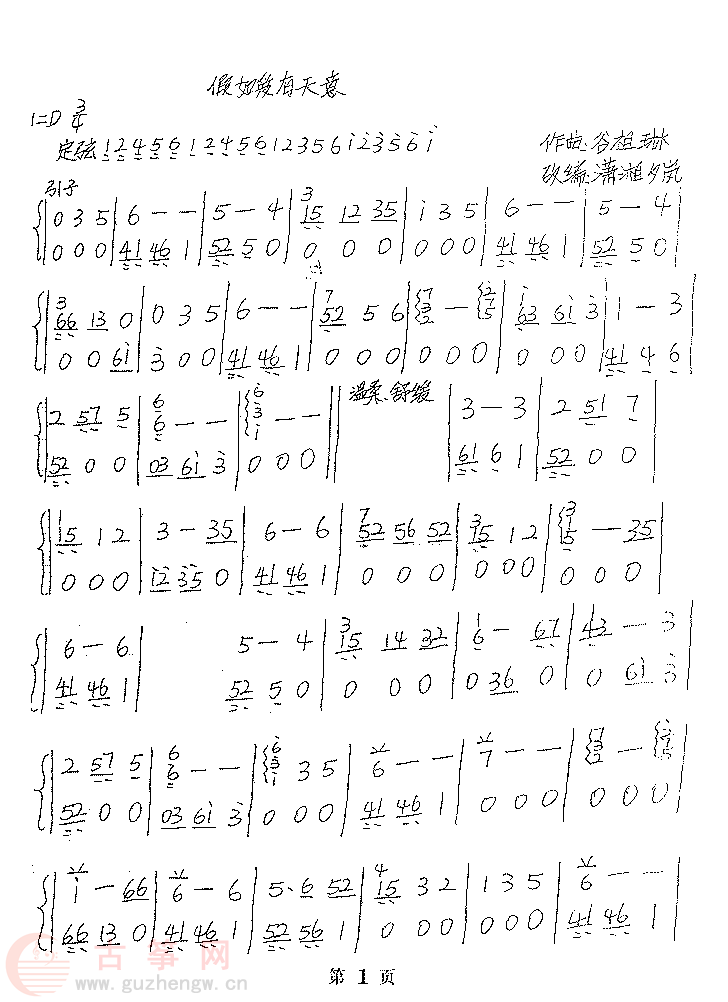 假如爱有天意
1=D 3/4
定弦 1 2 4 5 6 1 2 4 5 6 1 2 3 5 6 1 2 3 5 6 1
作曲:谷祖琳
改编:潇湘夕岚
引子
0 3 5 | 6 - - | 5 - 4 | 3 15 12 35 | 1 3 5 | 6 - - | 5 - 4
0 0 0 | 41 46 1 | 52 5 0 | 0 0 0 | 0 0 0 | 41 46 1 | 52 5 0
3 66 13 0 | 0 3 5 | 6 - - | 7 52 5 6 | 1 - 3
0 0 61 | 3 0 0 | 41 46 1 | 0 0 0 | 0 0 0 | 0 0 0 | 41 4 6
温柔、舒缓
2 57 5 | 6 6 - - | 6 3 1 - - | 3 - 3 | 2 51 7
52 0 0 | 03 61 3 | 0 0 0 | 61 6 1 | 52 0 0
15 1 2 | 3 - 35 | 6 - 6 | 7 52 56 52 | 3 15 1 2 | 3 1 5 - 35
0 0 0 | 12 35 0 | 41 46 1 | 0 0 0 | 0 0 0 | 0 0 0
6 - 6 | 5 - 4 | 3 15 14 32 | 1 6 - 67 | 43 - 3
41 46 1 | 52 5 0 | 0 0 0 | 0 36 0 | 0 61 3
2 57 5 | 6 6 - - | 6 3 1 3 5 | 6 - - | 7 - - | 7 3 2 -
52 0 0 | 03 61 3 | 0 0 0 | 41 46 1 | 0 0 0 | 0 0 0
1 - 66 | 6 - 6 | 5· 6 52 | 4 15 3 2 | 1 3 5 | 6 - -
66 13 0 | 41 46 1 | 52 56 1 | 0 0 0 | 0 0 0 | 41 46 1
古筝网
www.guzhengw.cn
第 1 页